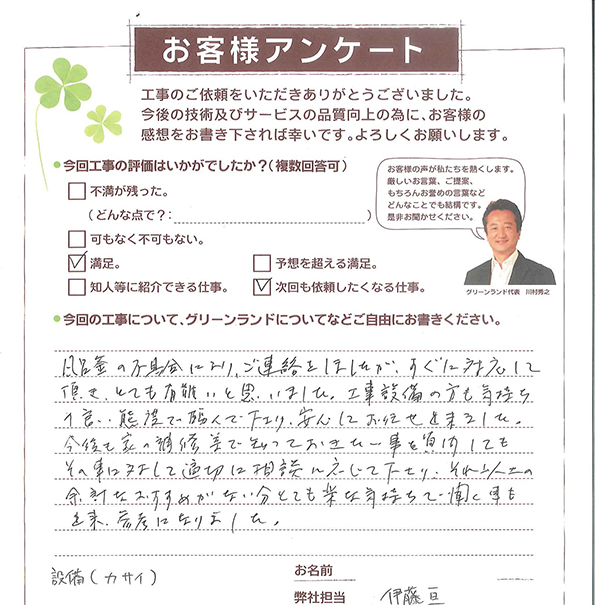 お客様アンケート
工事のご依頼をいただきありがとうございました。
今後の技術及びサービスの品質向上の為に、お客様の
感想をお書き下されば幸いです。よろしくお願いします。
●今回工事の評価はいかがでしたか？（複数回答可）
不満が残った。
（どんな点で？：　）
可もなく不可もない。
満足。
予想を超える満足。
知人等に紹介できる仕事。
次回も依頼したくなる仕事。
お客様の声が私たちを熱くします。
厳しいお言葉、ご提案、
もちろんお誉めの言葉など
どんなことでも結構です。
是非お聞かせください。
グリーンランド代表　川村秀之
●今回の工事について、グリーンランドについてなどご自由にお書きください。
風呂釜の不具合により、ご連絡をしましたが、すぐに対応して
頂き、とても有難いと思いました。工事設備の方も気持ち
の良い態度で臨んで下さり、安心してお任せ出来ました。
今後も家の補修等で知っておきたい事を質問しても
その事に対して適切に相談に応じて下さり、それ以上の
余計なおすすめがない分とても楽な気持ちで聞く事も
出来、参考になりました。
設備（カサイ）
お名前
弊社担当　伊藤 亘